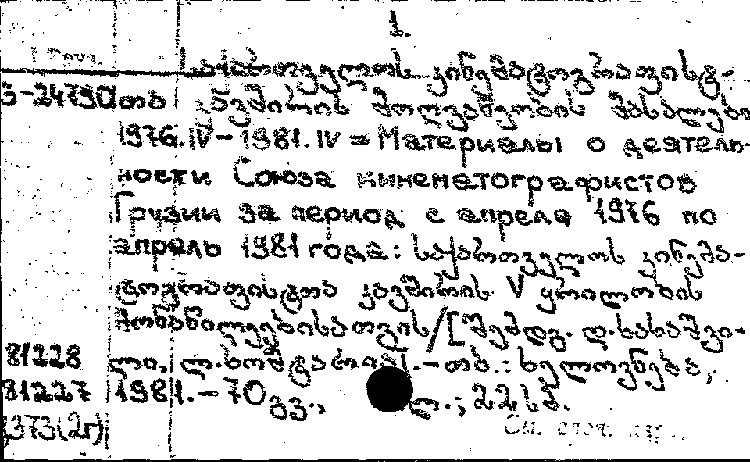 1.
საქართველოს კინემატოგრაფისტ-
3-24790 თა კავშირის მოღვაწეობის მასალები
1976.IV-1981.IV = Материалы о деятель-
ности Союза кинематографистов
Грузии за период с апреля 1976 по
апрель 1981 года: საქართველოს კინემა-
ტოგრაფისტთა კავშირის V ყრილობის
მონაწილეებისათვის/[შემდგ. დ.ხახაშვი-
81228 ლი, ლ. -თბ.: ხელოვნება,
81227 1981.-70 გვ., ლ.; 22 სმ.
См.